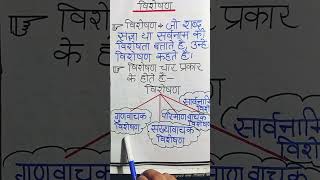 विशेषण
☞ विशेषण → जो शब्द
संज्ञा या सर्वनाम की
विशेषता बताते है, उन्हे
विशेषण कहते है।
☞ विशेषण चार प्रकार
के होते है:-
विशेषण
गुणवाचक
विशेषण
संख्यावाचक
विशेषण
परिमाणवाचक
विशेषण
सार्वनामि
विशे
सार्वनामि
विशे